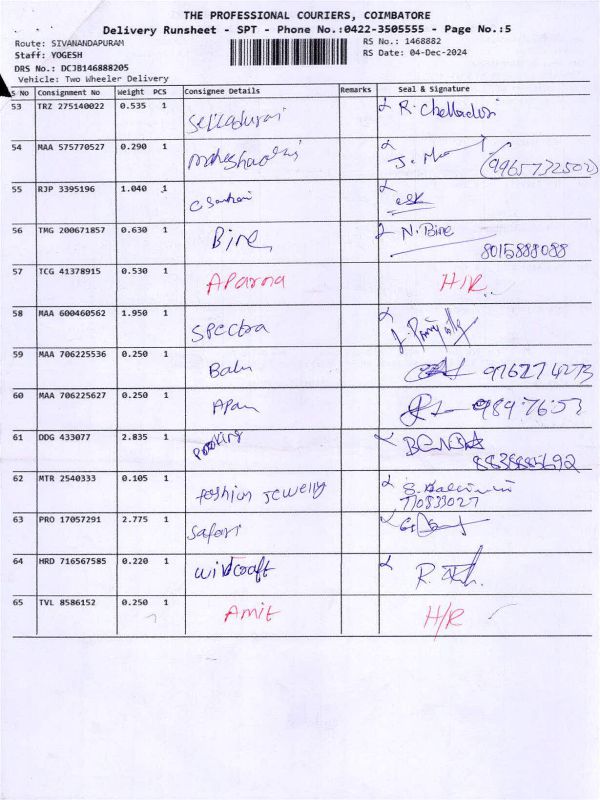 THE PROFESSIONAL COURIERS, COIMBATORE
Delivery Runsheet - SPT - Phone No.:0422-3505555 - Page No.:5
Route: SIVANANDAPURAM
RS No.: 1468882
Staff: YOGESH
RS Date: 04-Dec-2024
DRS No.: DCJB146888205
Vehicle: Two Wheeler Delivery
S No Consignment No Weight PCS Consignee Details Remarks Seal & Signature
53 TRZ 275140022 0.535 1 R. Chelladurai
54 MAA 575770527 0.290 1
(9965732502)
55 RJP 3395196 1.040 1
56 TMG 200671857 0.630 1 Bine N. Bine
8015888088
57 TCG 41378915 0.530 1 Aparna H/R
58 MAA 600460562 1.950 1 Spectra
59 MAA 706225536 0.250 1 Balu
60 MAA 706225627 0.250 1
61 DDG 433077 2.835 1
62 MTR 2540333 0.105 1 fashion Jewelly
63 PRO 17057291 2.775 1 Safari
64 HRD 716567585 0.220 1 wildcraft
65 TVL 8586152 0.250 1 Amit H/R